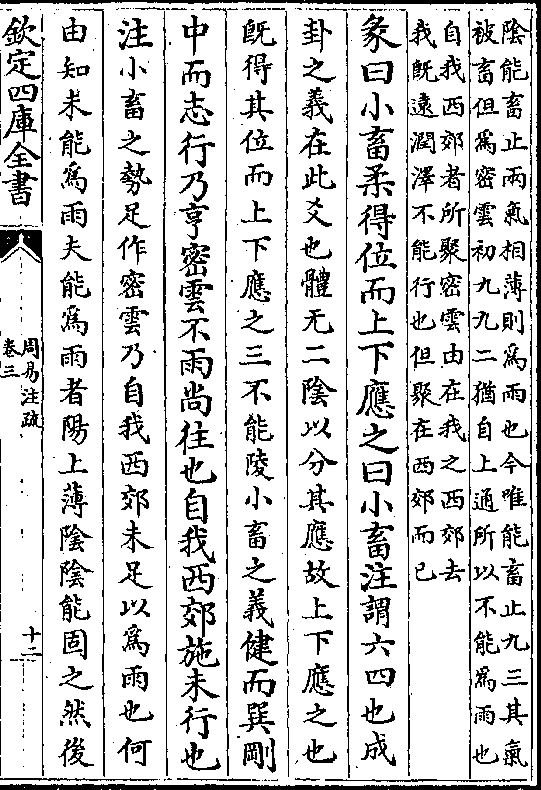 陰能畜止兩氣相薄則爲雨也今唯能畜止九三其氣
被畜但爲密雲初九九二猶自上通所以不能爲雨也
自我西郊者所聚密雲由在我之西郊去
我旣遠潤澤不能行也但聚在西郊而已
彖曰小畜柔得位而上下應之曰小畜注謂六四也成
卦之義在此爻也體无二陰以分其應故上下應之也
旣得其位而上下應之三不能陵小畜之義健而巽剛
中而志行乃亨密雲不雨尚往也自我西郊施未行也
注小畜之勢足作密雲乃自我西郊未足以爲雨也何
由知未能爲雨夫能爲雨者陽上薄陰陰能固之然後
欽定四庫全書
周易注疏
卷三
十二